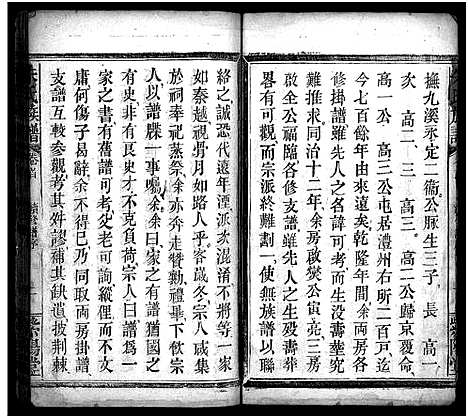 撫九溪永定二衞公脉生三子 長 高一
次 高二 三 高三 高二公歸京覆命
高一公 高三公屯居澧州右所二百戸迄
今七百餘年由來遠矣乾隆年間房
掛譜雖先人之名諱可考而生没壽塟究
屬未詳同治十二年余房啟爕公寅亮三房
大生公福臨各修支譜雖先人之生殁壽塟
畧有可觀而宗派終難劃一使無族譜以聯
絡之誠恐代遠年湮派亥混淆不將等一家
如秦越視骨月如路人乎客歲冬宗八咸集
於祠奉祀蒸祭余亦奔走贊勷祭畢下攸宗
人以譜牒一事囑余余曰家之有譜猶國之
有史非有良史才不克負荷宗人曰譜爲一
家之史非國史可考父老可詢諸故籍無大
庸何傷子曷辭余不得已乃何取両房掛譜
支譜互較参觀考其舛謬補其缺遺披荆棘
族譜
卷首